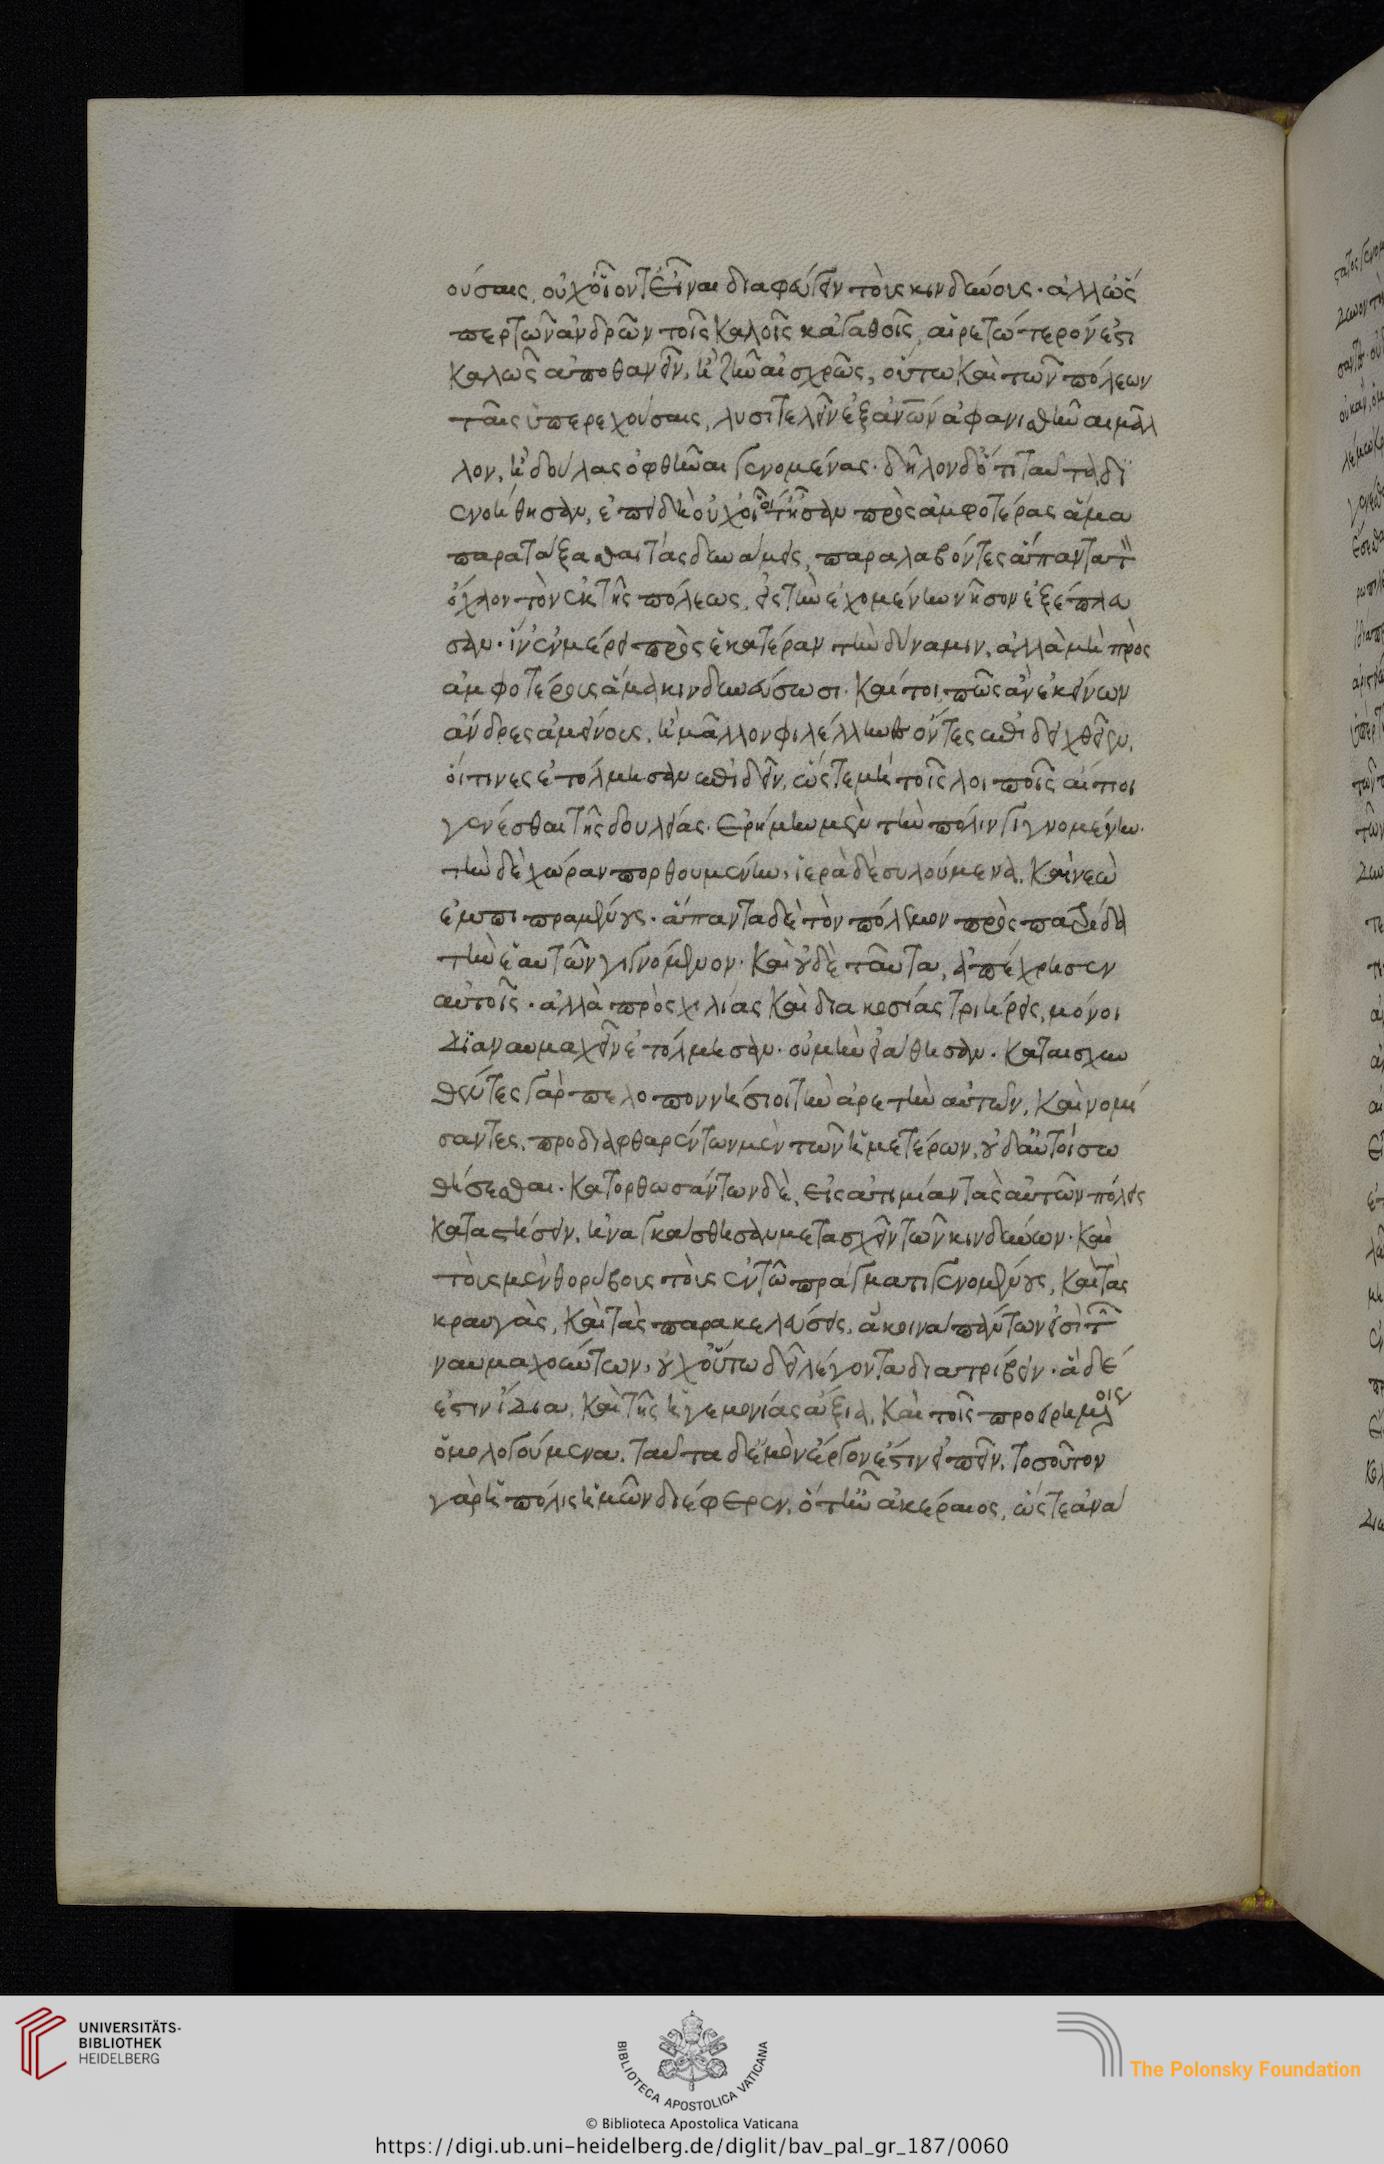 ούσαις, οὐχ οἷόν τ' εἶναι διαφεύγειν τοὺς κινδύνους. ἀλλ' ὥσ
περ τῶν ἀνδρῶν τοῖς καλοῖς κἀγαθοῖς, αἱρετώτερόν ἐστι
καλῶς ἀποθανεῖν, ἢ ζῆν αἰσχρῶς, οὕτω καὶ τῶν πόλεων
ταῖς ὑπερεχούσαις, λυσιτελεῖν ἐξ ἀνθρώπων ἀφανισθῆναι μᾶλ
λον, ἢ δούλας ὀφθῆναι γενομένας. δῆλον δ' ὅτι ταῦτα δι
ενοήθησαν, ἐπειδὴ οὐχ οἷοί τ' ἦσαν πρὸς ἀμφοτέρας ἅμα
παρατάξασθαι τὰς δυνάμεις, παραλαβόντες ἅπαντα τὸν
ὄχλον τὸν ἐκ τῆς πόλεως, εἰς τὴν ἐχομένην νῆσον ἐξέπλευ
σαν. ἵν' ἐν μέρει πρὸς ἑκατέραν τὴν δύναμιν, ἀλλὰ μὴ πρὸς
ἀμφοτέρας ἅμα κινδυνεύσωσι. Καίτοι πῶς ἂν ἐκείνων
ἄνδρες ἀμείνους, ἢ μᾶλλον φιλέλληνες ὄντες ἐπιδειχθεῖεν,
οἵτινες ἐτόλμησαν ἐπιδεῖν, ὥστε μὴ τοῖς λοιποῖς αἴτιοι
γενέσθαι τῆς δουλείας. ἐρήμην μὲν τὴν πόλιν γιγνομένην.
τὴν δὲ χώραν πορθουμένην, ἱερὰ δὲ συλούμενα. καὶ νεὼς
ἐμπιπραμένους. ἅπαντα δὲ τὸν πόλεμον πρὸς πατρίδα
τὴν ἑαυτῶν γιγνόμενον. Καὶ οὐδὲ ταῦτα, ἀπέχρησεν
αὐτοῖς. ἀλλὰ πρὸς χιλίας καὶ διακοσίας τριήρεις, μόνοι
διαναυμαχεῖν ἐτόλμησαν. οὐ μὴν εἰάθησαν. καταισχυν
θέντες γὰρ πελοποννήσιοι τὴν ἀρετὴν αὐτῶν, καὶ νομί
σαντες, προδιαφθαρέντων μὲν τῶν ἡμετέρων, οὐδ' αὐτοὶ σω
θήσεσθαι. κατορθωσάντων δὲ, εἰς ἀτιμίαν τὰς αὑτῶν πόλεις
καταστήσειν, ἠναγκάσθησαν μετασχεῖν τῶν κινδύνων. Καὶ
τοὺς μὲν θορύβους τοὺς ἐν τῷ πράγματι γενομένους, καὶ τὰς
κραυγὰς, καὶ τὰς παρακελεύσεις, ἃ κοινὰ πάντων ἐστὶ τῶν
ναυμαχούντων, οὐχ οὕτω δεῖ λέγοντα διατρίβειν. ἃ δέ
ἐστιν ἴδια, καὶ τῆς ἡγεμονίας ἄξια, καὶ τοῖς προειρημένοις
ὁμολογούμενα. ταῦτα δ' ἐμὸν ἔργον ἐστὶν εἰπεῖν. τοσοῦτον
γὰρ ἡ πόλις ἡμῶν διέφερεν, ὅτ' ἦν ἀκέραιος, ὥστε ἀνα
UNIVERSITÄTS-
BIBLIOTHEK
HEIDELBERG
BIBLIOTECA APOSTOLICA VATICANA
The Polonsky Foundation
© Biblioteca Apostolica Vaticana
https://digi.ub.uni-heidelberg.de/diglit/bav_pal_gr_187/0060